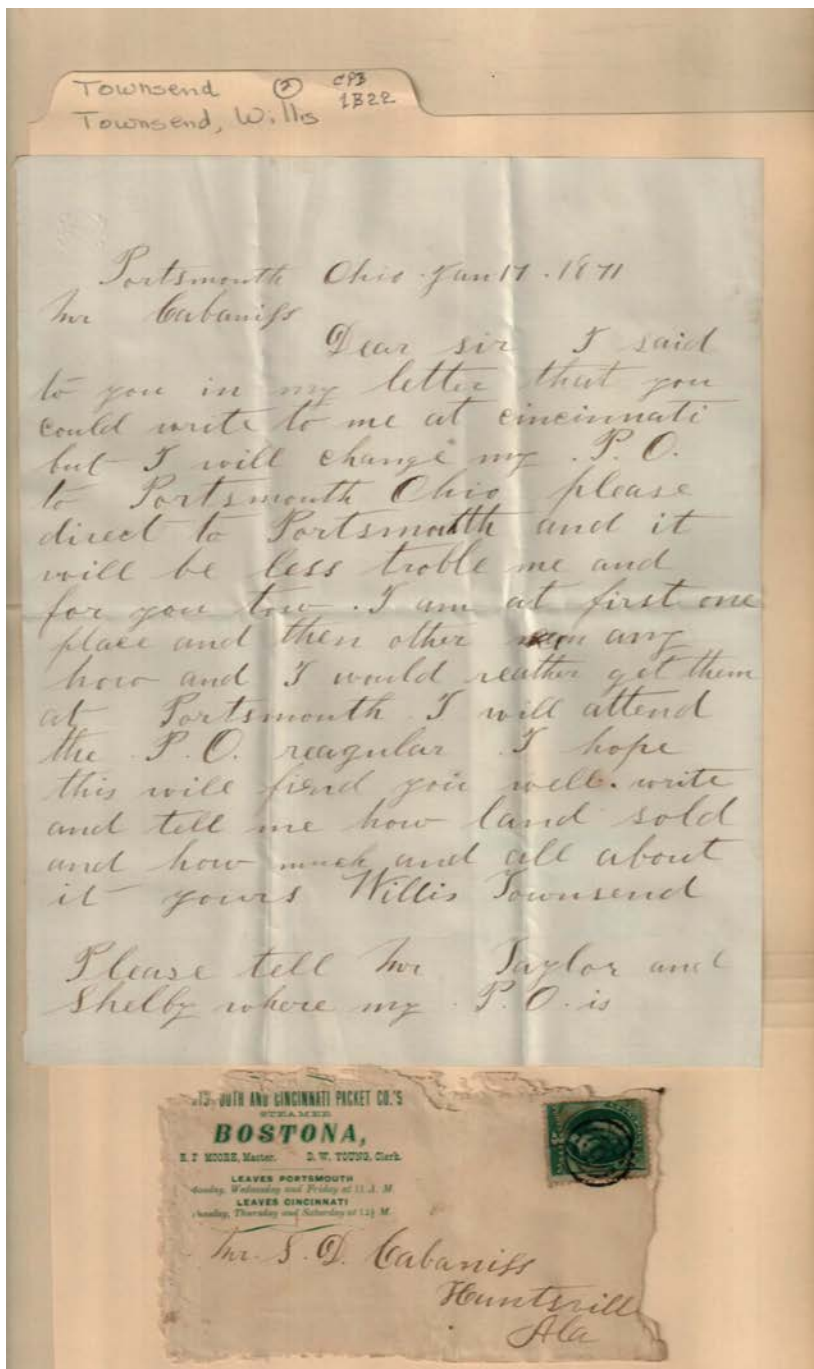 Townsend ② CPB
Townsend, Willis 1B22
Portsmouth Ohio Jan 17. 1871
Mr Cabaniss
Dear sir I said
to you in my letter that you
could write to me at cincinnati
but I will change my P. O.
to Portsmouth Ohio please
direct to Portsmouth and it
will be less troble me and
for you tow. I am at first one
place and then other any
how and I would reather get them
at Portsmouth I will attend
the P. O. reagular I hope
this will fiend you well. write
and tell me how land sold
and how much and all about
it yours Willis Townsend
Please tell Mr Taylor and
Shelby where my P. O. is
AND CINCINNATI PACKET CO.'S
STEAMER
BOSTONA,
MOORE, Master. D. W. YOUNG, Clerk.
LEAVES PORTSMOUTH
Wednesday and Friday at 11 A. M.
LEAVES CINCINNATI
Thursday and Saturday at M.
Mr. S. D. Cabaniss
Huntsville
Ala